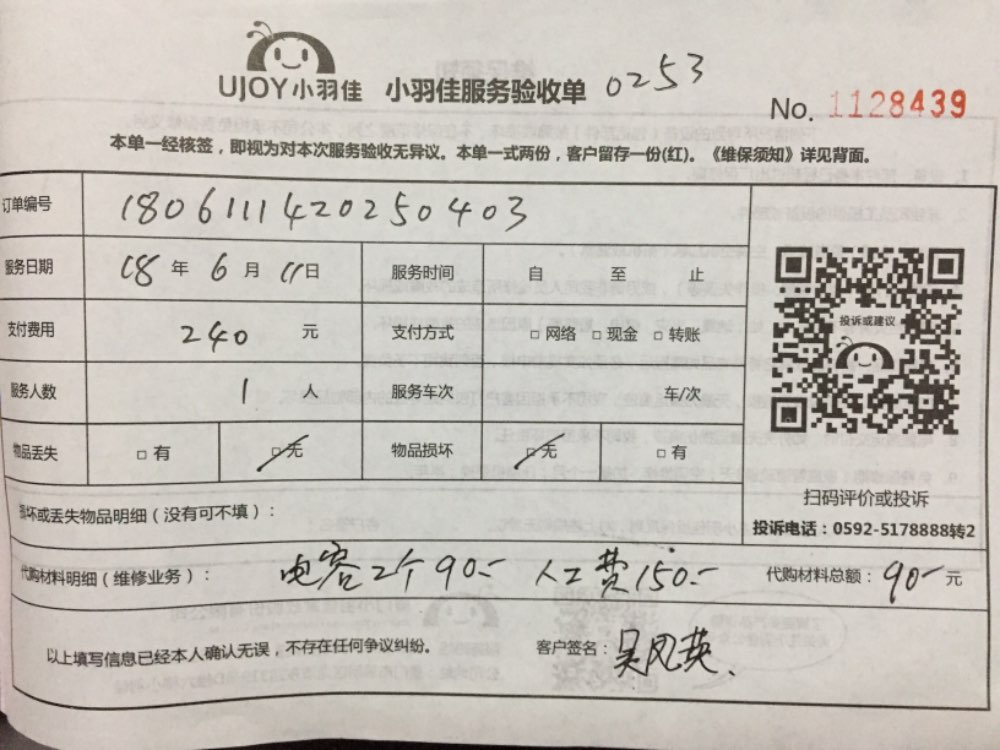 UJOY小羽佳 小羽佳服务验收单 0253
No. 1128439
本单一经核签，即视为对本次服务验收无异议。本单一式两份，客户留存一份(红)。《维保须知》详见背面。
订单编号 1806111420250403
服务日期 18 年 6 月 11日 服务时间 自 至 止
支付费用 240 元 支付方式 □ 网络 □ 现金 □ 转账
投诉或建议
服务人数 1 人 服务车次 车/次
物品丢失 □ 有 □ 无 物品损坏 □ 无 □ 有
扫码评价或投诉
损坏或丢失物品明细（没有可不填）：
投诉电话：0592-5178888转2
代购材料明细（维修业务）： 电容2个90.- 人工费150.- 代购材料总额：90- 元
以上填写信息已经本人确认无误，不存在任何争议纠纷。 客户签名：吴凤英